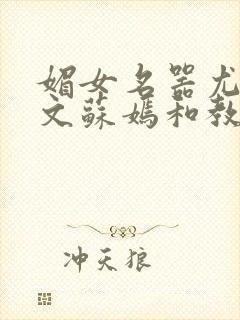 媚女名器尤
文蘇媽和教
冲天狼